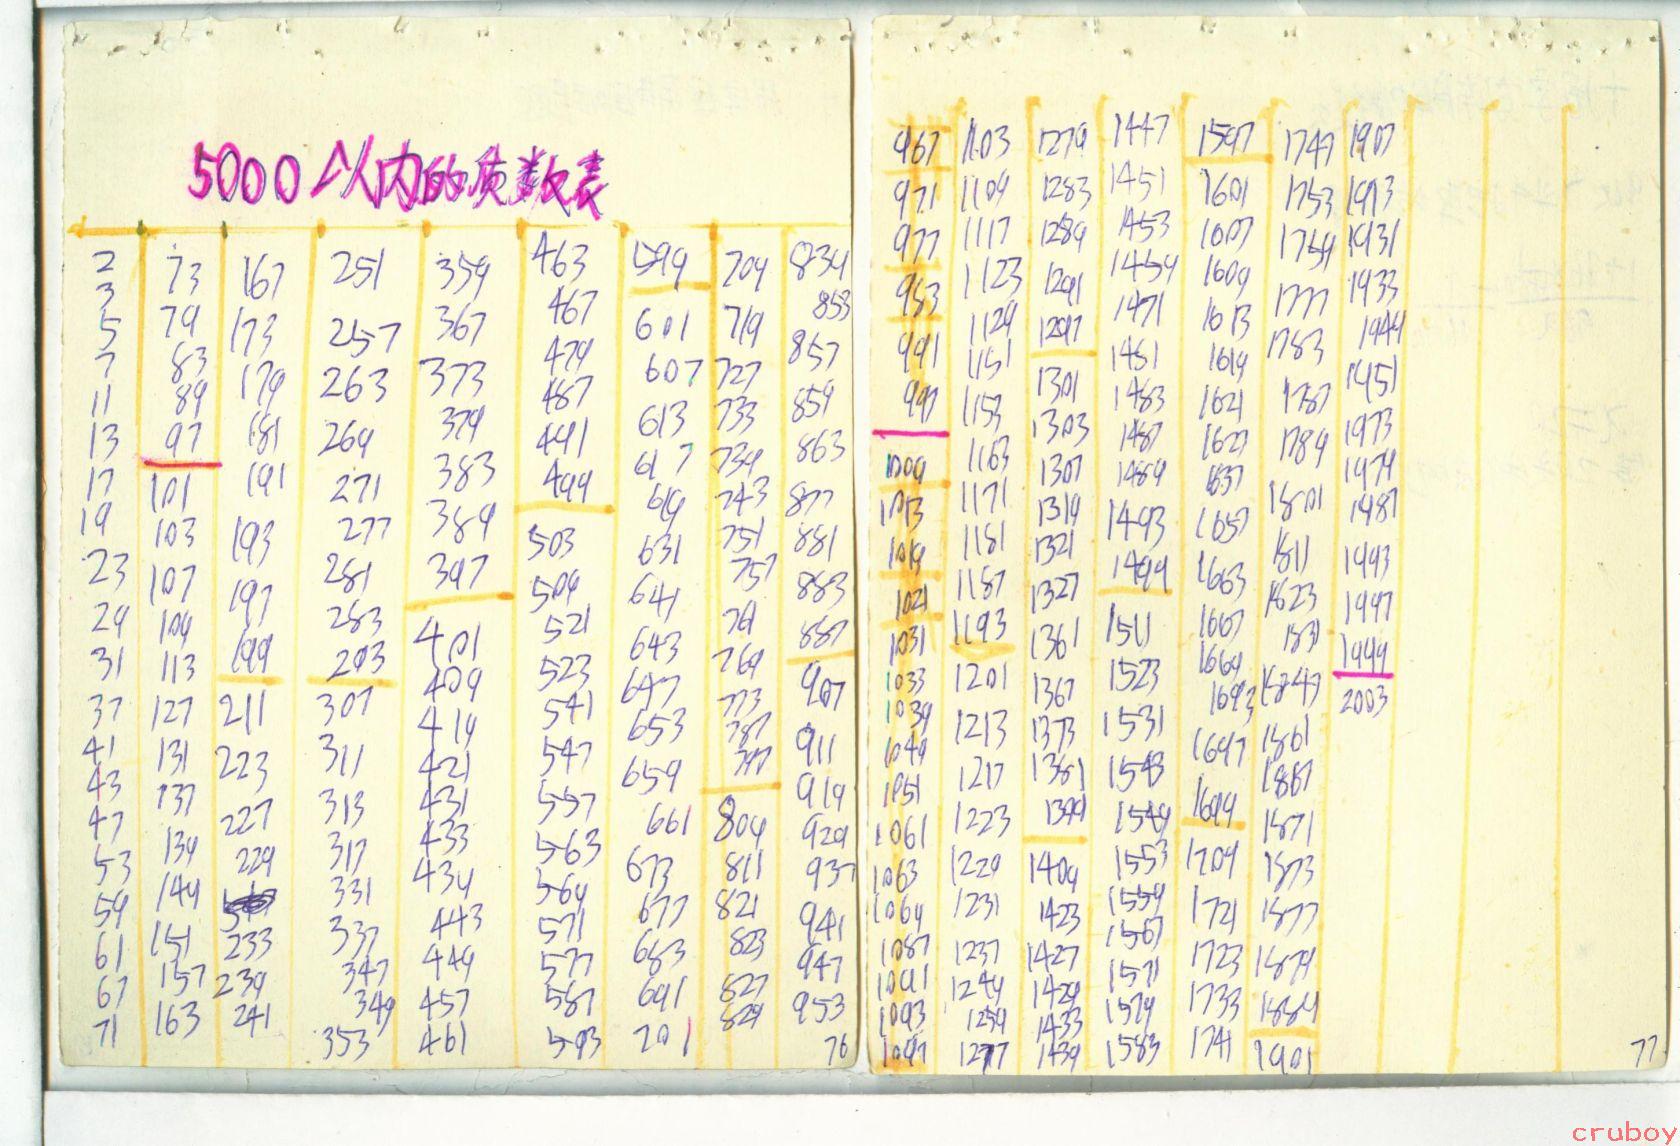 5000以内的质数表
2
3
5
7
11
13
17
19
23
29
31
37
41
43
47
53
59
61
67
71
73
79
83
89
97
101
103
107
109
113
127
131
137
139
149
151
157
163
167
173
179
181
191
193
197
199
211
223
227
229
233
239
241
251
257
263
269
271
277
281
283
293
307
311
313
317
331
337
347
349
353
359
367
373
379
383
389
397
401
409
419
421
431
433
439
443
449
457
461
463
467
479
487
491
499
503
509
521
523
541
547
557
563
569
571
577
587
593
599
601
607
613
617
619
631
641
643
647
653
659
661
673
677
683
691
701
709
719
727
733
739
743
751
757
761
769
773
787
797
809
811
821
823
827
829
839
853
857
859
863
877
881
883
887
907
911
919
929
937
941
947
953
76
967
971
977
983
991
997
1009
1013
1019
1021
1031
1033
1039
1049
1051
1061
1063
1069
1087
1091
1093
1097
1103
1109
1117
1123
1129
1151
1153
1163
1171
1181
1187
1193
1201
1213
1217
1223
1229
1231
1237
1249
1259
1277
1279
1283
1289
1291
1297
1301
1303
1307
1319
1321
1327
1361
1367
1373
1381
1399
1409
1423
1427
1429
1433
1439
1447
1451
1453
1459
1471
1481
1483
1487
1489
1493
1499
1511
1523
1531
1543
1549
1553
1559
1567
1571
1579
1583
1597
1601
1607
1609
1613
1619
1621
1627
1637
1657
1663
1667
1669
1693
1697
1699
1709
1721
1723
1733
1741
1747
1753
1759
1777
1783
1787
1789
1801
1811
1823
1831
1847
1861
1867
1871
1873
1877
1879
1889
1901
1907
1913
1931
1933
1949
1951
1973
1979
1987
1993
1997
1999
2003
77
cruboy